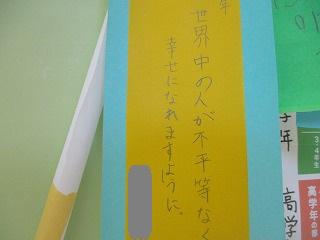 年
世界中の人が不平等なく
幸せになれますように。
年
3・4年生
高学年の部
高学